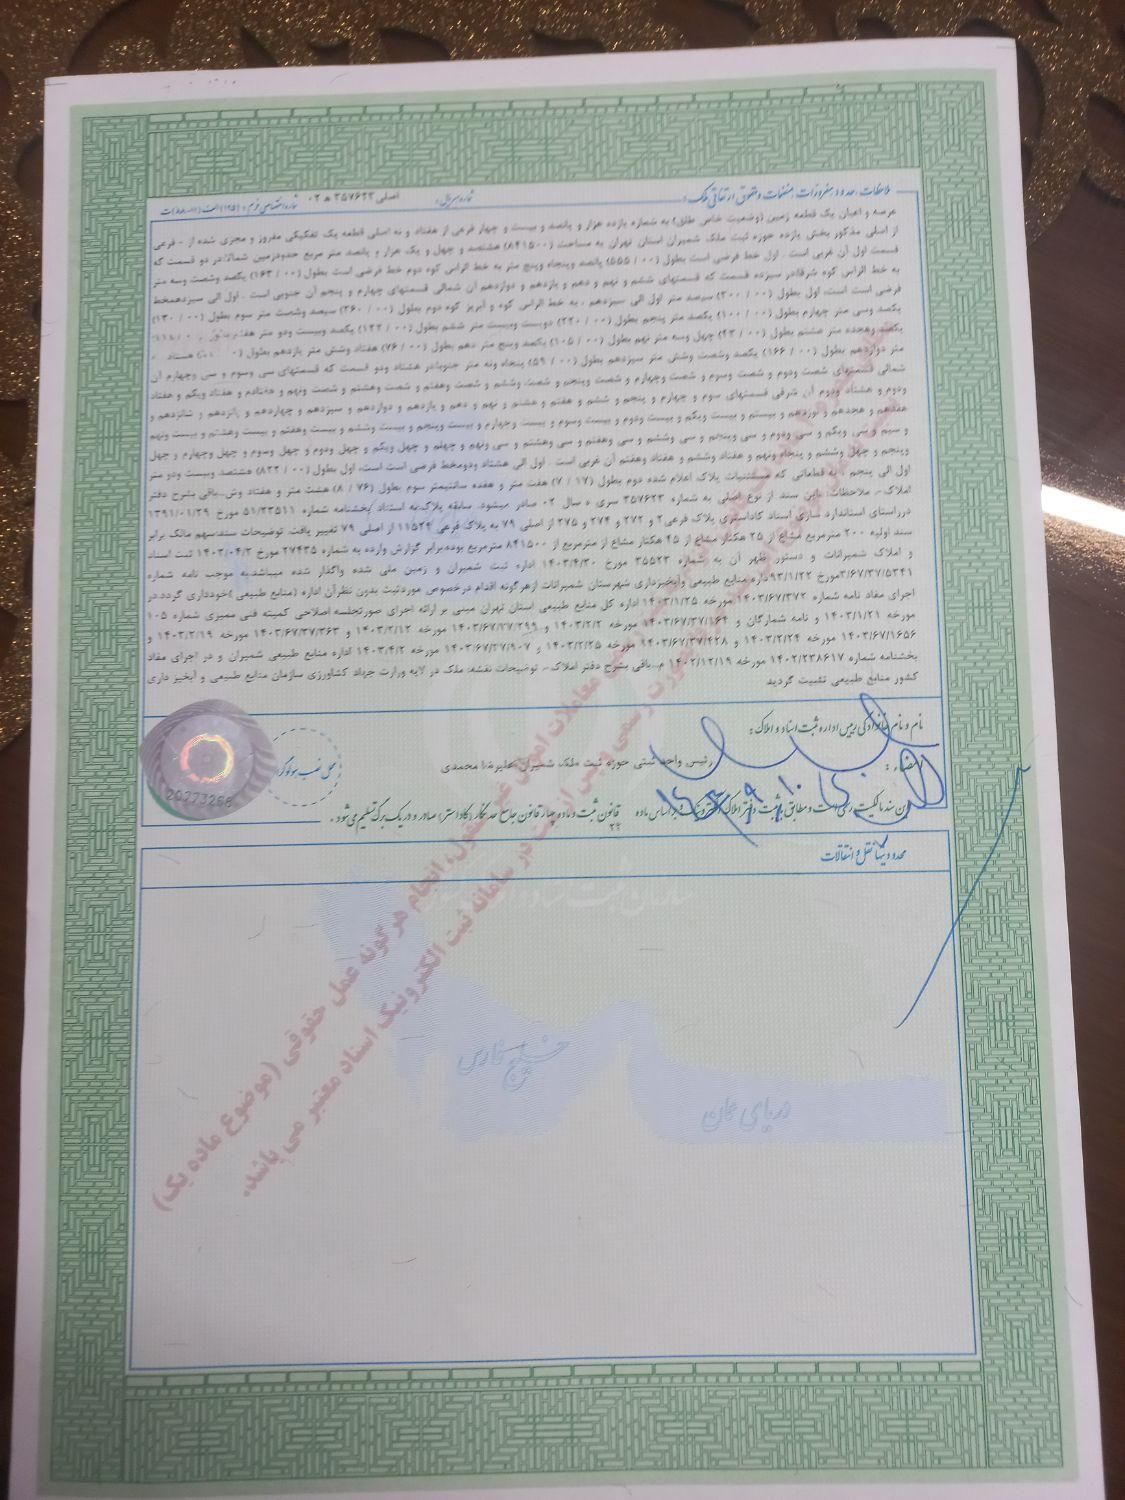 ملاحظات، حدود، مفروزات، منضمات و حقوق ارتفاقی ملک:
شماره سریال: اصلی ۳۵۷۶۲۳ ه ۰۲
عرصه و اعیان یک قطعه زمین (وضعیت خاص طلق) به شماره یازده هزار و پانصد و بیست و چهار فرعی از هفتاد و نه اصلی قطعه یک تفکیکی مفروز و مجزی شده از - فرعی
از اصلی مذکور بخش یازده حوزه ثبت ملک شمیران استان تهران به مساحت (۸۴۱۵۰۰) هشتصد و چهل و یک هزار و پانصد متر مربع حدودزمین شمالا:در دو قسمت که
قسمت اول آن غربی است . اول خط فرضی است بطول (۰۰ / ۵۵۵) پانصد وپنجاه وپنج متر به خط الراس کوه دوم خط فرضی است بطول (۰۰ / ۱۶۳) یکصد وشصت وسه متر
به خط الراس کوه شرقا:در سیزده قسمت که قسمتهای ششم و نهم و دهم و یازدهم و دوازدهم آن شمالی قسمتهای چهارم و پنجم آن جنوبی است . اول الی سیزدهم خط
فرضی است است، اول بطول (۰۰ / ۳۰۰) سیصد متر اول الی سیزدهم ، به خط الراس کوه و آبریز کوه دوم بطول (۰۰ / ۳۶۰) سیصد وشصت متر سوم بطول (۰۰ / ۱۳۰)
یکصد وسی متر چهارم بطول (۰۰ / ۱۰۰) یکصد متر پنجم بطول (۰۰ / ۲۲۰) دویست وبیست متر ششم بطول (۰۰ / ۱۲۲) یکصد وبیست ودو متر
یکصد وهجده متر هشتم بطول (۰۰ / ۴۳) چهل وسه متر نهم بطول (۰۰ / ۱۰۵) یکصد وپنج متر دهم بطول (۰۰ / ۷۶) هفتاد وشش متر یازدهم بطول
متر دوازدهم بطول (۰۰ / ۱۶۶) یکصد وشصت وشش متر سیزدهم بطول (۰۰ / ۵۹) پنجاه ونه متر جنوبا:در هشتاد ودو قسمت که قسمتهای سی وسوم و سی وچهارم آن
شمالی قسمتهای شصت ودوم و شصت وسوم و شصت وچهارم و شصت وپنجم و شصت وششم و شصت وهفتم و شصت وهشتم و شصت ونهم و هفتادم و هفتاد ویکم و هفتاد
ودوم و هشتاد ودوم آن شرقی قسمتهای سوم و چهارم و پنجم و ششم و هفتم و هشتم و نهم و دهم و یازدهم و دوازدهم و سیزدهم و چهاردهم و پانزدهم و شانزدهم و
هفدهم و هجدهم و نوزدهم و بیستم و بیست ویکم و بیست ودوم و بیست وسوم و بیست وچهارم و بیست وپنجم و بیست وششم و بیست وهفتم و بیست وهشتم و بیست ونهم
و سیم و سی ویکم و سی ودوم و سی وپنجم و سی وششم و سی وهفتم و سی وهشتم و سی ونهم و چهلم و چهل ویکم و چهل ودوم و چهل وسوم و چهل وچهارم و چهل
وپنجم و چهل وششم و پنجاه ونهم و هفتاد وششم و هفتاد وهفتم آن غربی است . اول الی هشتاد ودومخط فرضی است است، اول بطول (۰۰ / ۸۲۲) هشتصد وبیست ودو متر
اول الی پنجم ، به قطعاتی که مستثنیات پلاک اعلام شده دوم بطول (۱۷ / ۷) هفت متر و هفده سانتیمتر سوم بطول (۷۶ / ۸) هشت متر و هفتاد وش...باقی بشرح دفتر
املاک.- ملاحظات: این سند از نوع اصلی به شماره ۳۵۷۶۲۳ سری ه سال ۰۲ صادر میشود. سابقه پلاک:به استناد بخشنامه شماره ۵۱/۲۳۵۱۱ مورخ ۱۳۹۱/۰۱/۲۹
درراستای استاندارد سازی اسناد کاداستری پلاک فرعی ۲ و ۲۷۲ و ۲۷۴ و ۲۷۵ از اصلی ۷۹ به پلاک فرعی ۱۱۵۲۴ از اصلی ۷۹ تغییر یافت. توضیحات سند:سهم مالک برابر
سند اولیه ۲۰۰ مترمربع مشاع از ۲۵ هکتار مشاع از ۴۵ هکتار مشاع از مترمربع از ۸۴۱۵۰۰ مترمربع بوده برابر گزارش وارده به شماره ۲۷۴۳۵ مورخ ۱۴۰۳/۰۴/۲ ثبت اسناد
و املاک شمیرانات و دستور ظهر آن به شماره ۳۵۵۲۳ مورخ ۱۴۰۳/۴/۳۰ اداره ثبت شمیران و زمین ملی شده واگذار شده میباشد.به موجب نامه شماره
۳/۶۷/۳۷/۵۳۴۱مورخ ۹۳/۱/۲۲داره منابع طبیعی وآبخیزداری شهرستان شمیرانات ازهرگونه اقدام درخصوص موردثبت بدون نظرآن اداره (منابع طبیعی )خودداری گردد.در
اجرای مفاد نامه شماره ۱۴۰۳/۶۷/۳۷۲ مورخه ۱۴۰۳/۱/۲۵ اداره کل منابع طبیعی استان تهران مبنی بر ارائه اجرای صورتجلسه اصلاحی کمیته فنی ممیزی شماره ۱۰۵
مورخه ۱۴۰۳/۱/۲۱ و نامه شمارگان و ۱۴۰۳/۶۷/۳۷/۱۶۴ مورخه ۱۴۰۳/۲/۲ و ۱۴۰۳/۶۷/۳۷/۲۹۹ مورخه ۱۴۰۳/۲/۱۲ و ۱۴۰۳/۶۷/۳۷/۳۶۳ مورخه ۱۴۰۳/۲/۱۹ و
۱۴۰۳/۶۷/۱۶۵۶ مورخه ۱۴۰۳/۲/۲۴ و ۱۴۰۳/۶۷/۳۷/۴۲۸ مورخه ۱۴۰۳/۲/۲۵ و ۱۴۰۳/۶۷/۳۷/۹۰۷ مورخه ۱۴۰۳/۴/۲ اداره منابع طبیعی شمیران و در اجرای مفاد
بخشنامه شماره ۱۴۰۲/۲۳۸۶۱۷ مورخه ۱۴۰۲/۱۲/۱۹ م...باقی بشرح دفتر املاک.- توضیحات نقشه: ملک در لایه وزارت جهاد کشاورزی سازمان منابع طبیعی و آبخیز داری
کشور منابع طبیعی تثبیت گردید
نام و نام خانوادگی رییس اداره ثبت اسناد و املاک:
رئیس واحد ثبتی حوزه ثبت ملک شمیران علیرضا محمدی
امضاء :
محل نصب هولوگرام
20773266
این سند مالکیت رسمی است و مطابق با ثبت دفتر املاک الکترونیک بر اساس ماده ۲۲ قانون ثبت و ماده چهار قانون جامع حدنگار (کاداستر) صادر و در یک برگ تسلیم می‌شود .
محدودیتها، نقل و انتقالات
معاملات اموال غیر منقول، انجام هرگونه عمل حقوقی (موضوع ماده یک)
در سامانه ثبت الکترونیک اسناد معتبر می باشد.
خلیج فارس
دریای عمان